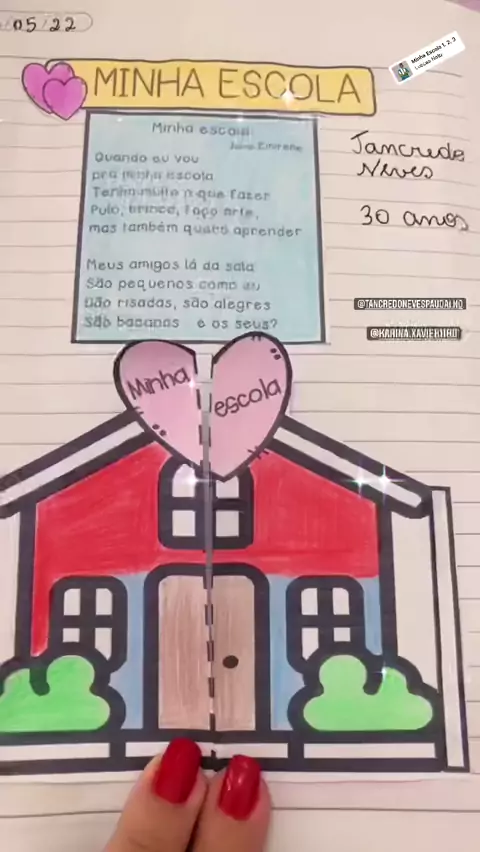 05/22
Minha Escola 1, 2, 3
MINHA ESCOLA
Minha escola
Quando eu vou
pra minha escola
Tenho muito o que fazer
Pulo, brinco, faço arte,
mas também quero aprender
Meus amigos lá da sala
São pequenos como eu
Dão risadas, são alegres
São bacanas e os seus?
Tancredo
Neves
30 anos
@TANCREDONEVESPAUDALHO
Minha
escola